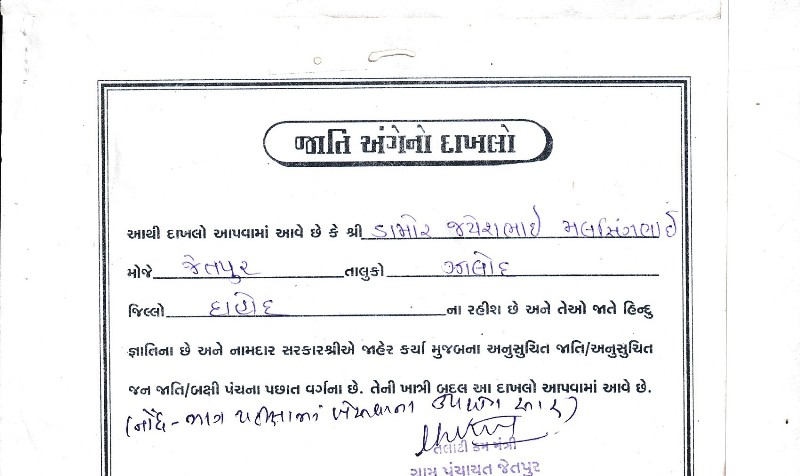 જાતિ અંગેનો દાખલો
આથી દાખલો આપવામાં આવે છે કે શ્રી ડામોર જયેશભાઇ મલસિંગભાઈ
મોજે જેતપુર તાલુકો ઝાલોદ
જિલ્લો દાહોદ ના રહીશ છે અને તેઓ જાતે હિન્દુ
જ્ઞાતિના છે અને નામદાર સરકારશ્રીએ જાહેર કર્યા મુજબના અનુસુચિત જાતિ/અનુસુચિત
જન જાતિ/બક્ષી પંચના પછાત વર્ગના છે. તેની ખાત્રી બદલ આ દાખલો આપવામાં આવે છે.
(નોંધ - માત્ર પરીક્ષામાં
તલાટી કમ મંત્રી
ગ્રામ પંચાયત જેતપુર